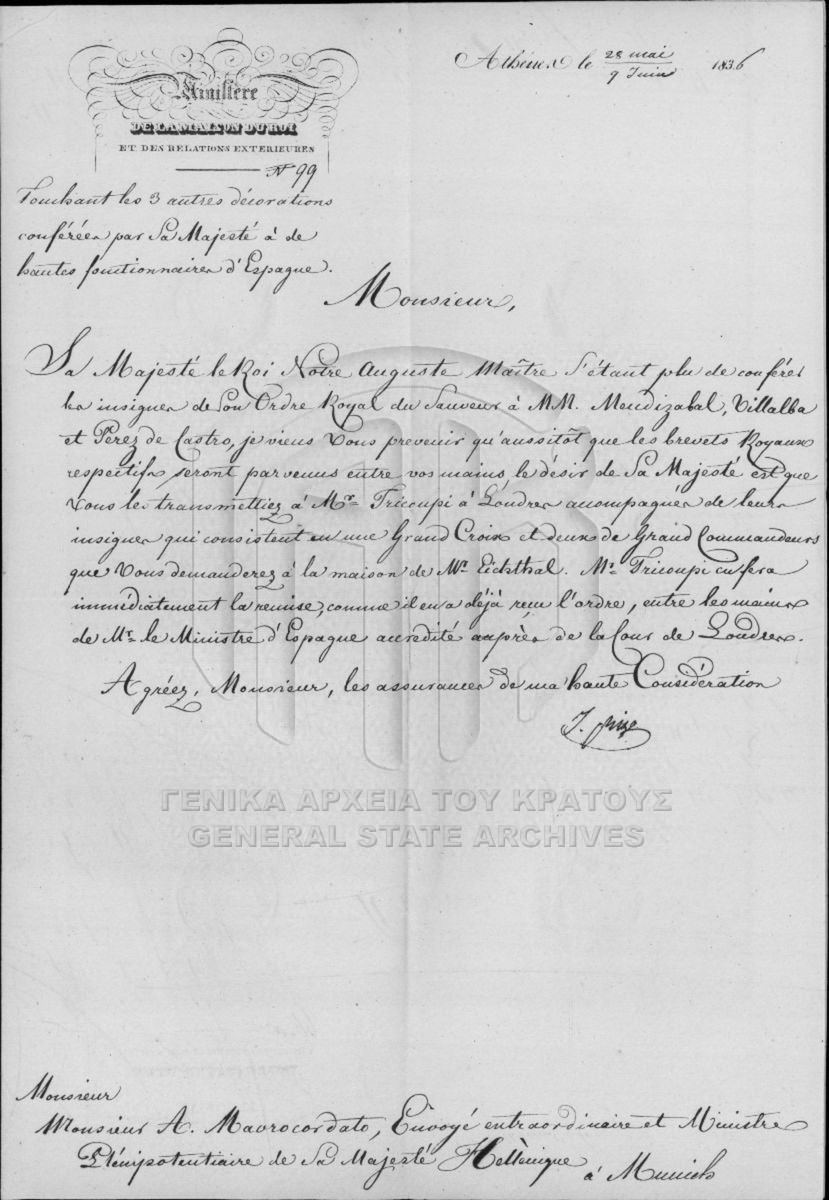 Athènes le 28 mai / 9 Juin 1836
Ministère
DE LA MAISON DU ROI
ET DES RELATIONS EXTERIEURES
N 99
Touchant les 3 autres décorations
conférées par Sa Majesté à de
hautes fonctionnaires d'Espagne.
Monsieur,
Sa Majesté le Roi Notre Auguste Maître s'étant plu de conférer
les insignes de Son Ordre Royal du Sauveur à MM. Mendizabal, Villalba
et Pérez de Castro, je viens Vous prevenir qu'aussitôt que les brevets Royaux
respectifs seront parvenus entre vos mains le désir de Sa Majesté est que
Vous les transmettiez à Mr. Tricoupi à Londres accompagnés de leurs
insignes qui consistent en une Grand Croix et deux de Grand Commandeurs
que Vous demanderez à la maison de Mr. Eichthal. Mr. Tricoupi en fera
immédiatement la remise, comme il en a déjà reçu l'ordre, entre les mains
de Mr. le Ministre d'Espagne accrédité auprès de la Cour de Londres.
Agréez, Monsieur, les assurances de ma haute Considération
ΓΕΝΙΚΑ ΑΡΧΕΙΑ ΤΟΥ ΚΡΑΤΟΥΣ
GENERAL STATE ARCHIVES
Monsieur
Monsieur A. Mavrocordato, Envoyé extraordinaire et Ministre
Plénipotentiaire de Sa Majesté Hellènique
à Munich